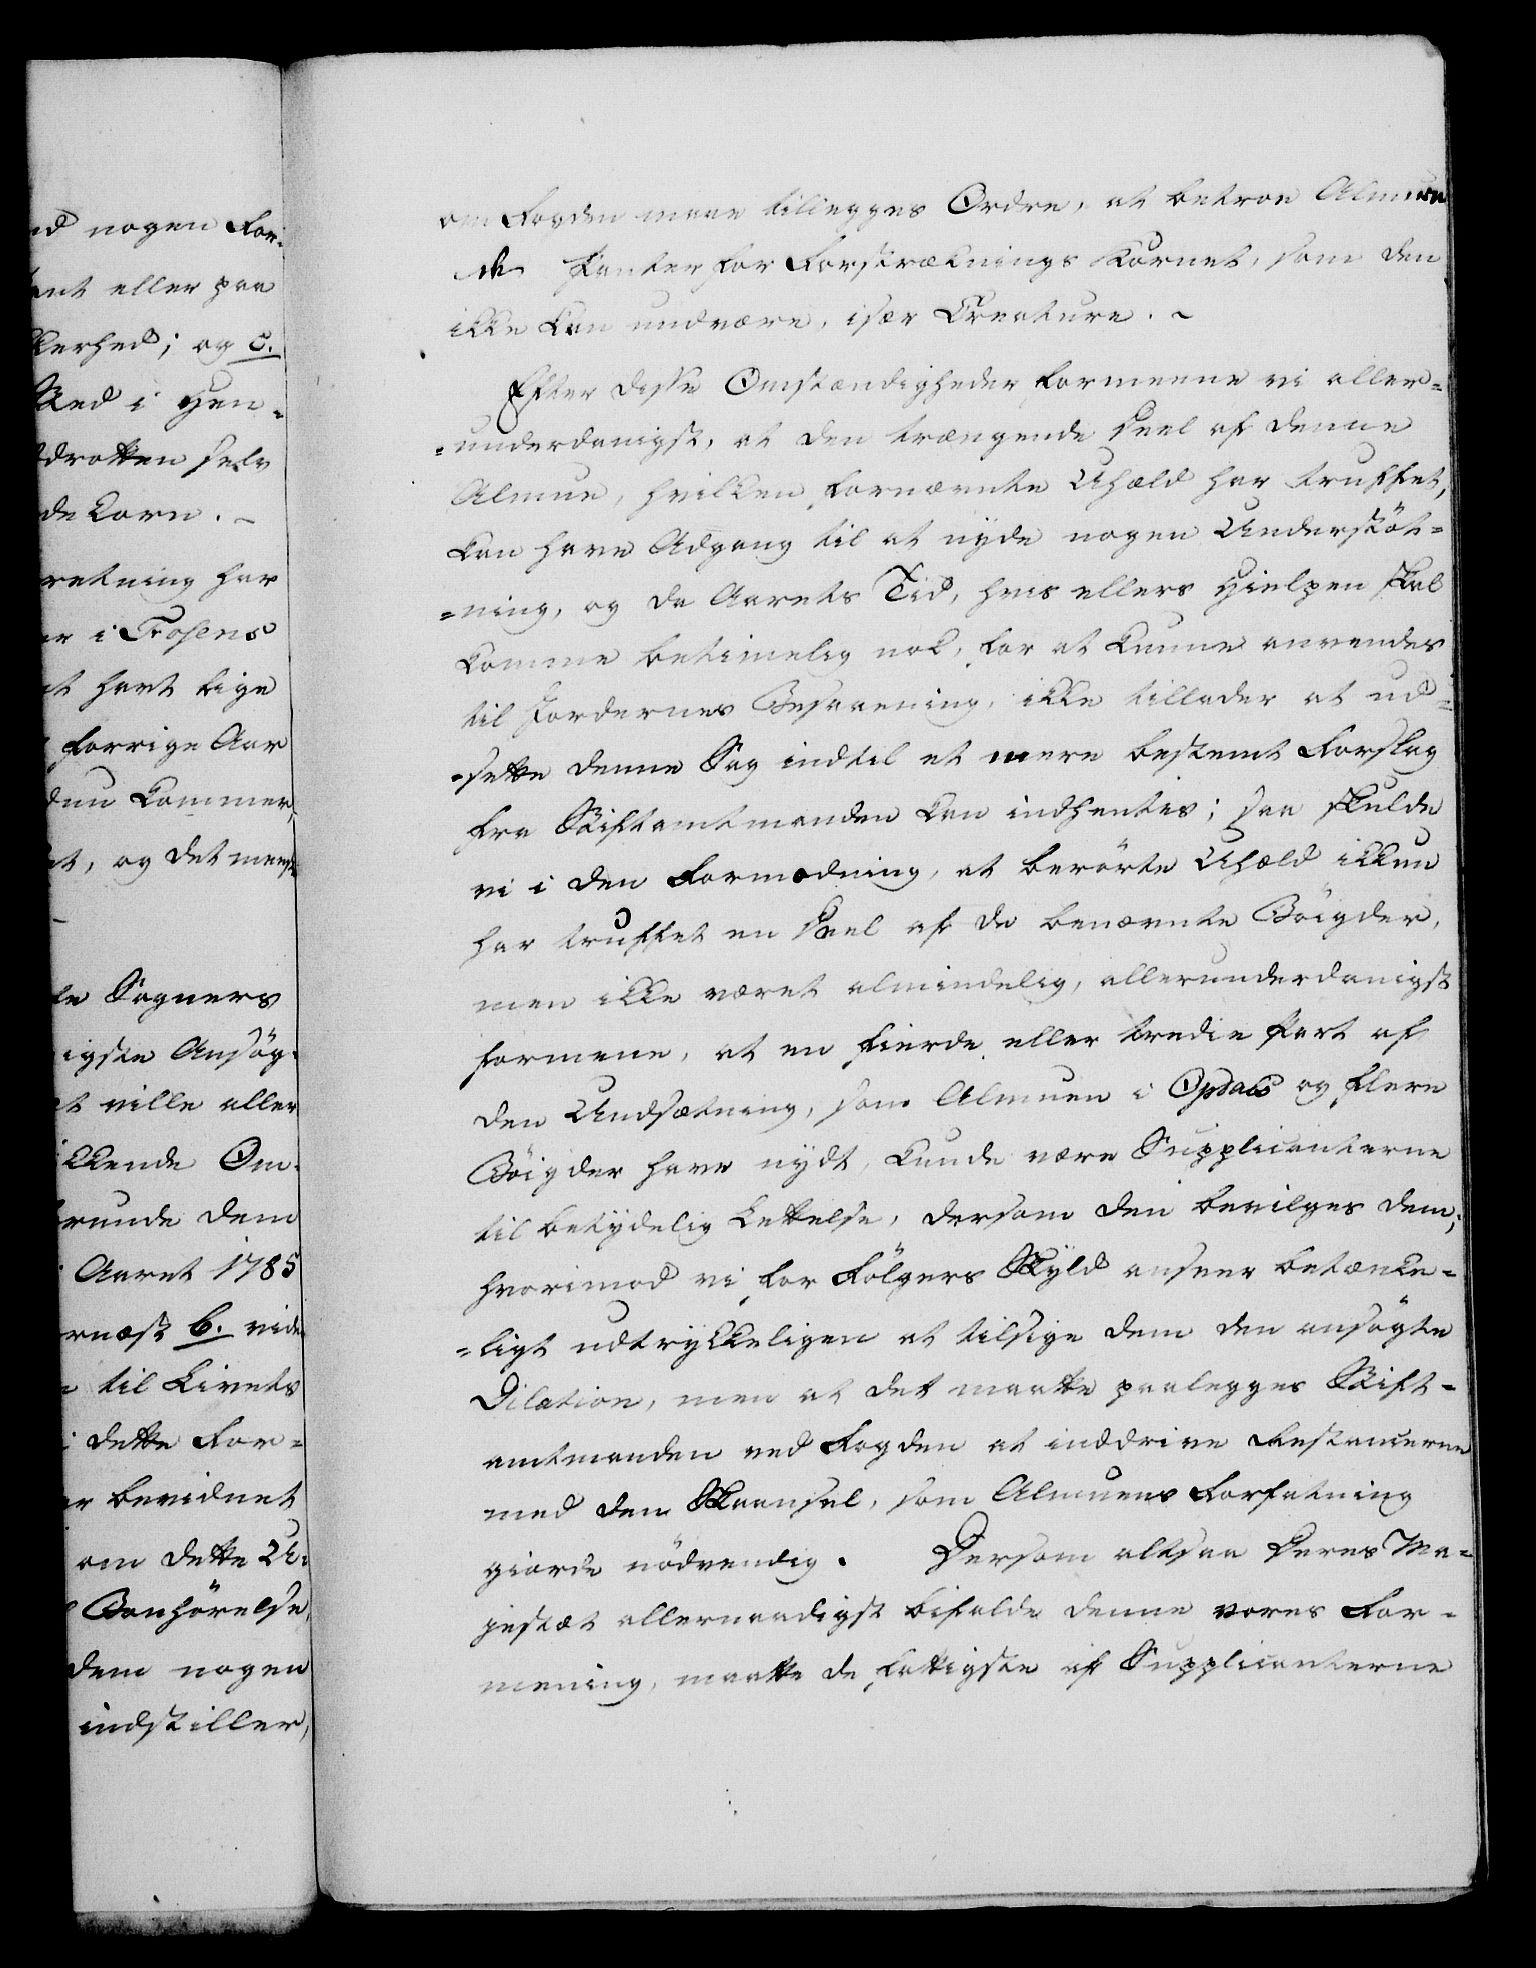 nd nogen For-
ant eller paa
kkerhed; og c.
Med i Hen-
ddrotten selv
de Korn. -
retning har
er i Fosens
at havt lige
forrige Aar
dnu kommer,
et, og det meest
te Sogners
igste Ansøg-
et ville aller
kkende Om-
runde dem
Aaret 1785
rnæst b. vide
til Livets
i dette For-
er bevidnet
om dette U-
Bønhørelse,
dem nogen
indstiller,
om Fogden maae tillegges Ordre, at betroe Almuen
de Panter for Forstræknings Kornet, som den
ikke kan undvære, især Creature. -
Efter disse Omstændigheder formeene vi aller-
-underdanigst, at den trængende Deel af denne
Almue, hvilken fornævnte Uhæld har truffet,
kan have Adgang til at nyde nogen Understøt-
-ning, og da Aarets Tid, hvis ellers Hielpen skal
komme betimelig nok, for at kunne anvendes
til Jordernes Besaaening, ikke tillader at ud-
-sette denne Sag indtil et mere bestemt Forslag
fra Stiftamtmanden kan indhentes; saa skulde
vi i den Formodning, at berørte Uhæld ikkun
har truffet en Deel af de benævnte Bøigder,
men ikke været almindelig, allerunderdanigst
formene, at en fierde eller tredie Part af
den Undsætning, som Almuen i Opdals og flere
Bøigder have nydt, kunde være Supplicanterne
til betydelig Lettelse, dersom den bevilges dem;
hvorimod vi for Følgers Skyld anseer betænke-
-ligt udtrykkeligen at tilsige dem den ansøgte
Dilation, men at det maatte paalegges Stift-
amtmanden ved Fogden at inddrive Restancerne
med den Skaansel, som Almuens Forfatning
giorde nødvendig. Dersom altsaa Deres Ma-
jestæt allernaadigst bifalde denne vores For-
mening, maatte de fattigste af Supplicanterne